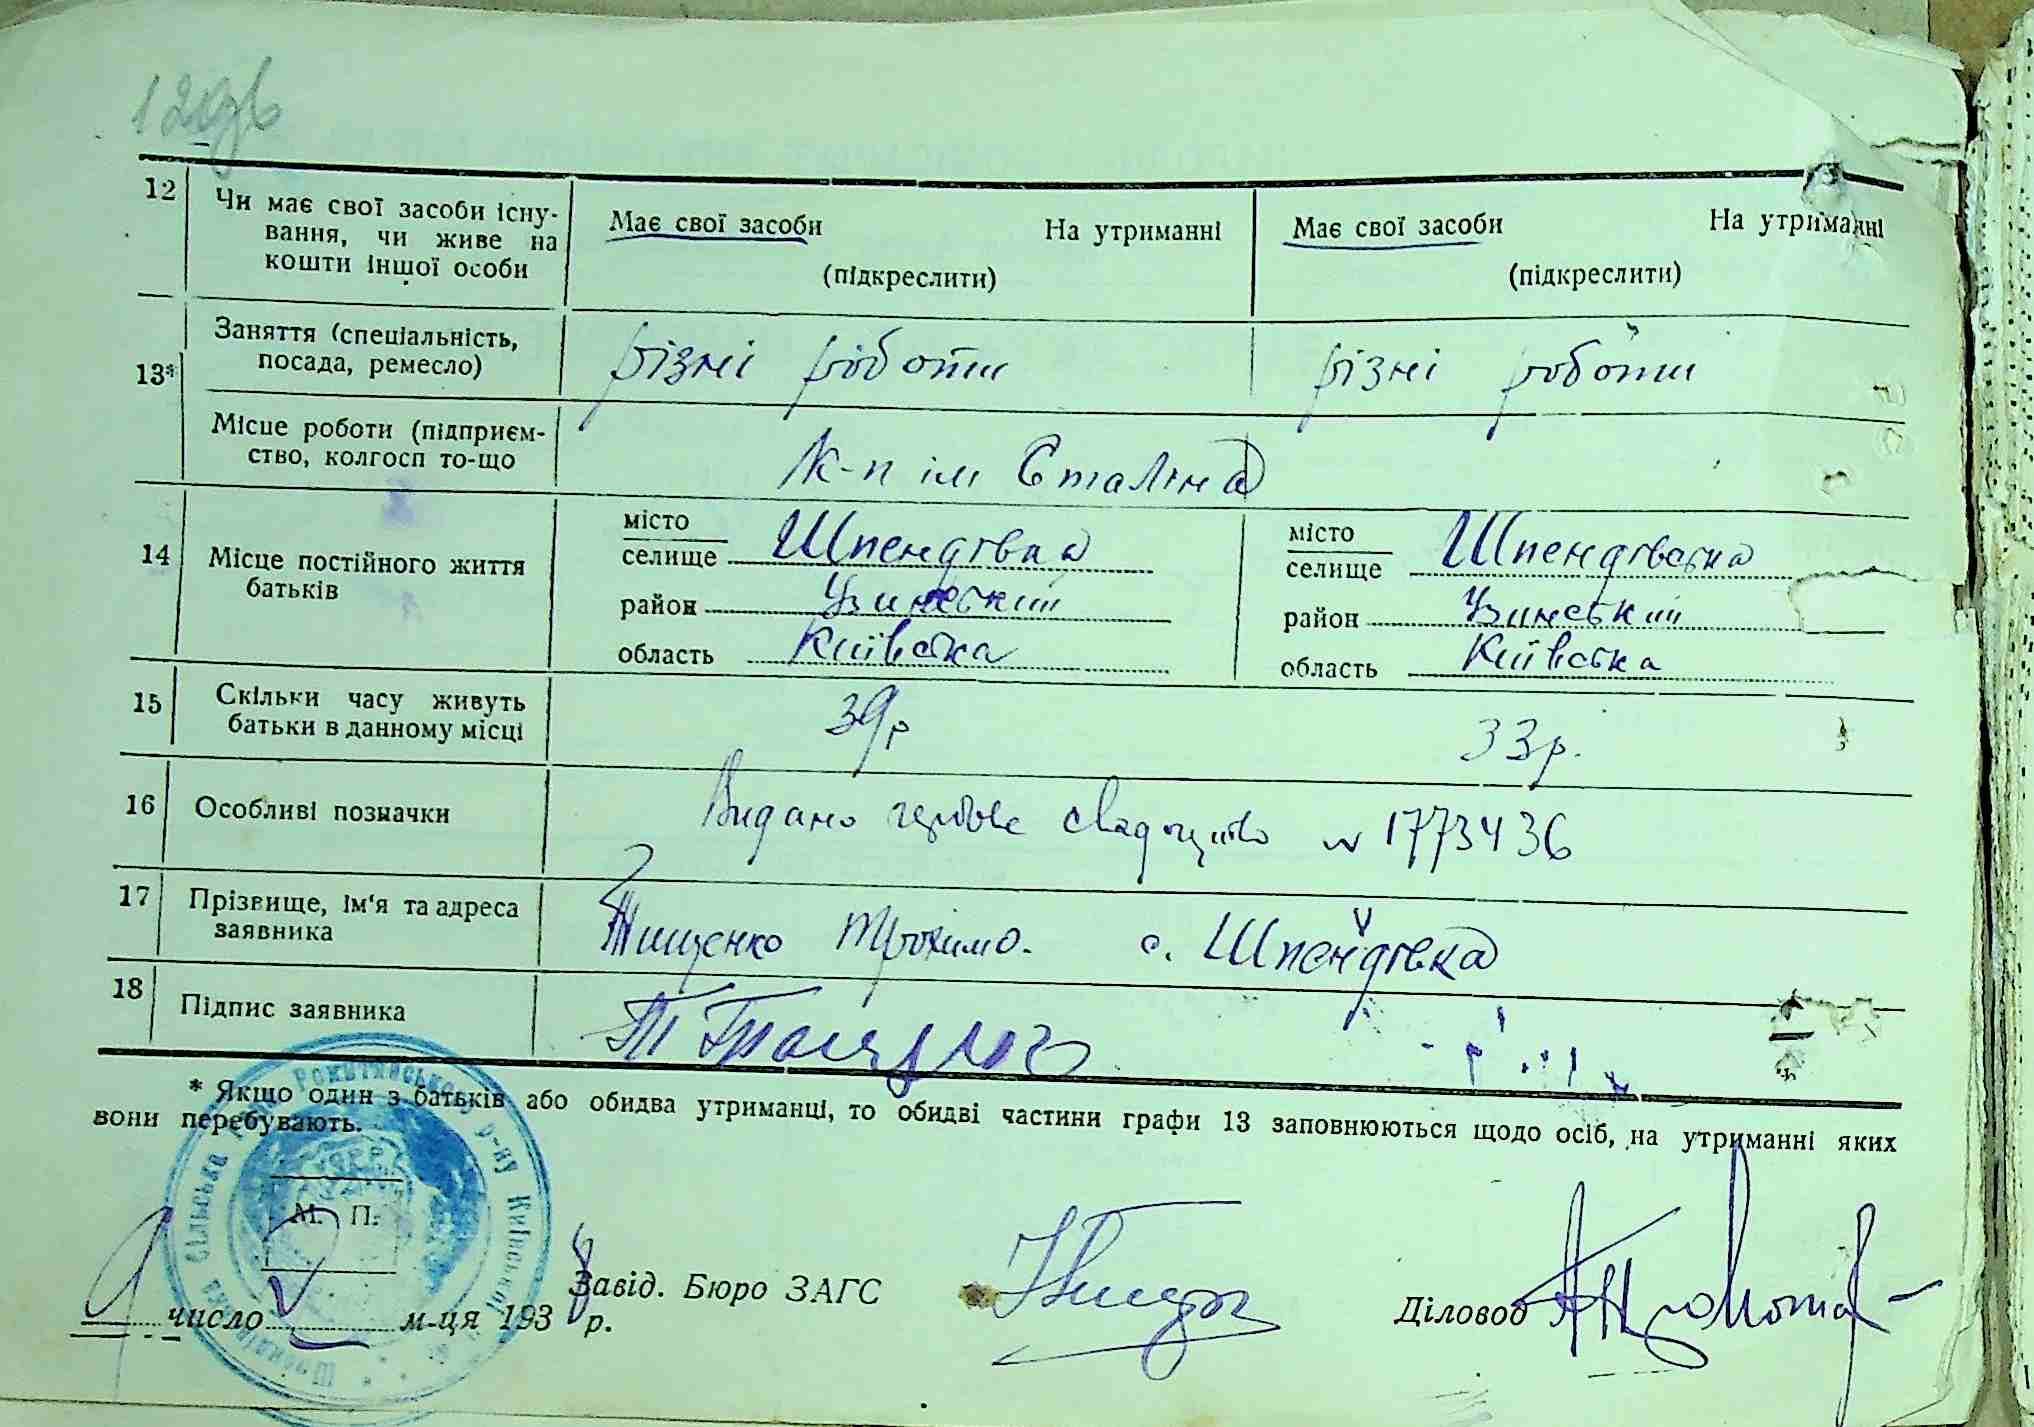 12
Чи має свої засоби існу-
вання, чи живе на
кошти іншої особи
Має свої засоби На утриманні
(підкреслити)
Має свої засоби На утриманні
(підкреслити)
13*
Заняття (спеціальність,
посада, ремесло)
різні роботи
різні роботи
Місце роботи (підприєм-
ство, колгосп то-що
К-п ім Сталіна
14
Місце постійного життя
батьків
місто
селище Шпендівка
район Узинський
область Київська
місто
селище Шпендівська
район Узинський
область Київська
15
Скільки часу живуть
батьки в данному місці
39р
33р.
16
Особливі позначки
Видано гербове свідоцтво N 1773436
17
Прізвище, ім'я та адреса
заявника
Тищенко Трохимо. с. Шпендівка
18
Підпис заявника
* Якщо один з батьків або обидва утриманці, то обидві частини графи 13 заповнюються щодо осіб, на утриманні яких
вони перебувають.
М. П.
9 число V м-ця 1938 р.
Завід. Бюро ЗАГС
Діловод